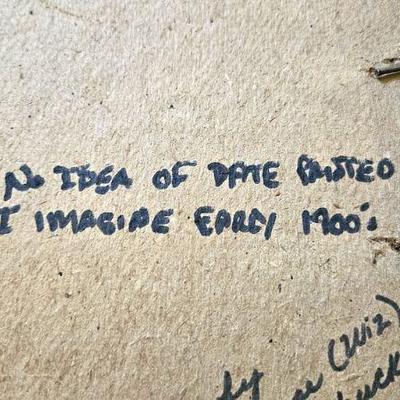 No IDEA OF DATE PAINTED
I IMAGINE EARLY 1900's
by
(Wiz)